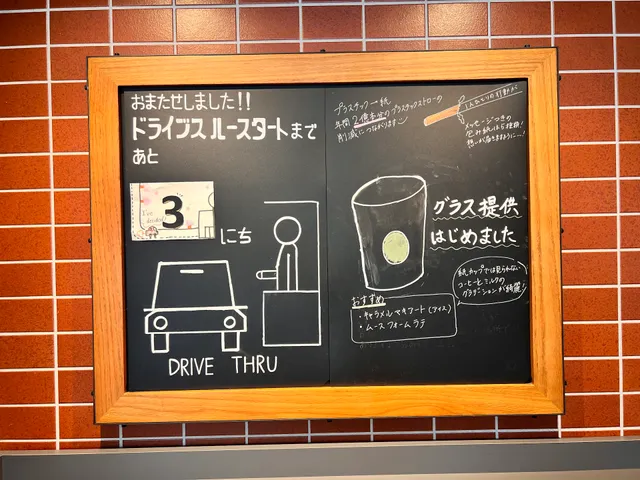 おまたせしました!!
ドライブスルースタートまで
あと
3
にち
DRIVE THRU
プラスチック→紙
年間2億本分のプラスチックストローの
削減につながります
1人ひとりの行動が
メッセージつきの
包み紙は5種類!
グラス提供
はじめました
紙カップでは見られない
コーヒーとミルクの
グラデーションが綺麗!
おすすめ
・キャラメルマキアート(アイス)
・ムースフォームラテ